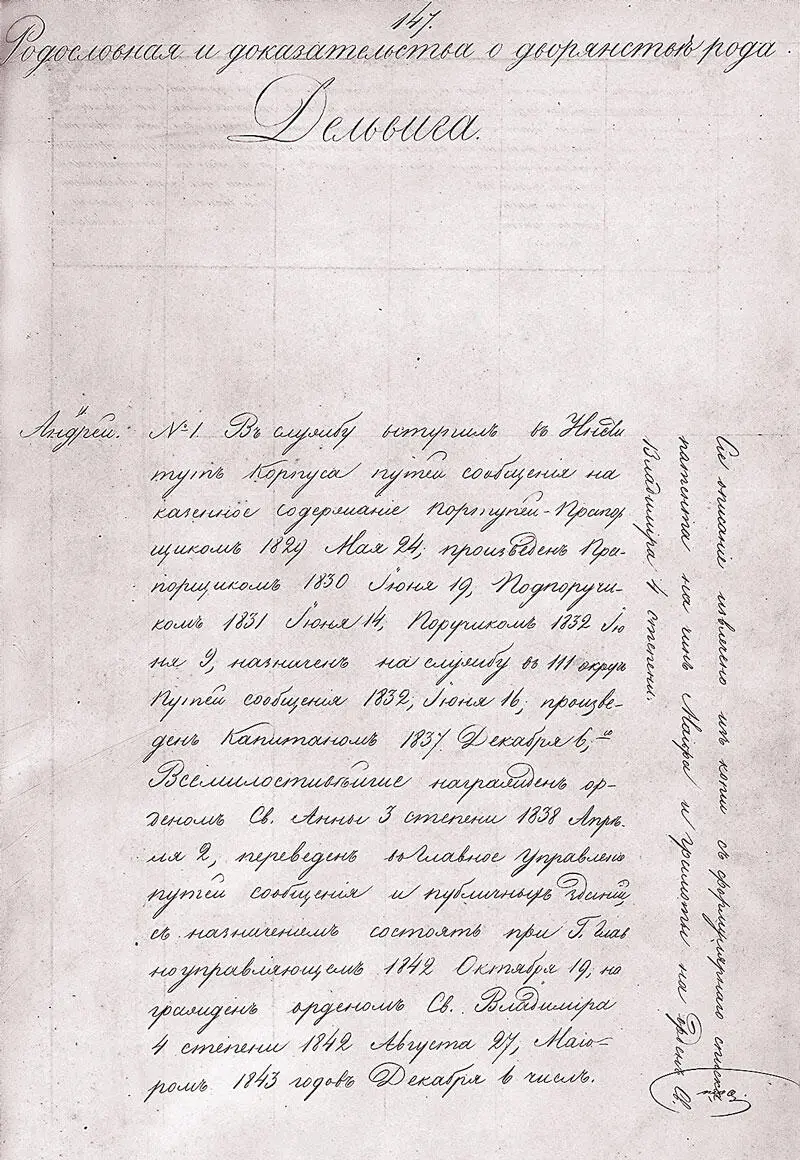 147.
Родословная и доказательства о дворянстве рода
Дельвига.
Андрей. №1. Въ службу вступилъ въ Инсти
тутъ Корпуса путей сообщения на
казенное содержание Портупей-Прапор
щикомъ 1829 Мая 24; произведенъ Пра-
порщикомъ 1830 Іюня 19, Подпоручи-
комъ 1831 Іюня 14, Поручикомъ 1832 Iю
ня 9, назначенъ на службу въ III округъ
Путей сообщения 1832, Iюня 16; произве-
денъ Капитаномъ 1837 Декабря 6,
Всемилостивѣйше награжденъ ор-
деномъ Св. Анны 3 степени 1838 Апрѣ-
ля 2, переведенъ въ Главное Управлено
путей сообщения и публичныхъ Зданий,
съ назначениемъ состоять при Г. Глав
ноуправляющемъ 1842 Октября 19, на
гражденъ орденомъ Св. Владиміра
4 степени 1842 Августа 27, Маіо-
ромъ 1843 годовъ Декабря 6 числъ.
Сіе описаніе извлечено изъ копіи съ формулярнаго списка
патента на чинъ Маіора и грамоты на орденъ Св.
Владиміра 4 степени.